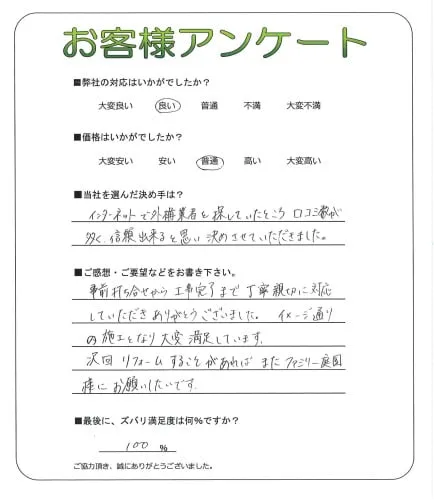 お客様アンケート
■弊社の対応はいかがでしたか？
大変良い 良い 普通 不満 大変不満
■価格はいかがでしたか？
大変安い 安い 普通 高い 大変高い
■当社を選んだ決め手は？
インターネットで外構業者を探していたところ 口コミ数が
多く、信頼出来ると思い決めさせていただきました。
■ご感想・ご要望などをお書き下さい。
事前打ち合せから工事完了まで丁寧親切に対応
していただきありがとうございました。 イメージ通り
の施工となり大変満足しています。
次回リフォームすることがあればまたファミリー庭園
様にお願いしたいです。
■最後に、ズバリ満足度は何％ですか？
100 %
ご協力頂き、誠にありがとうございました。